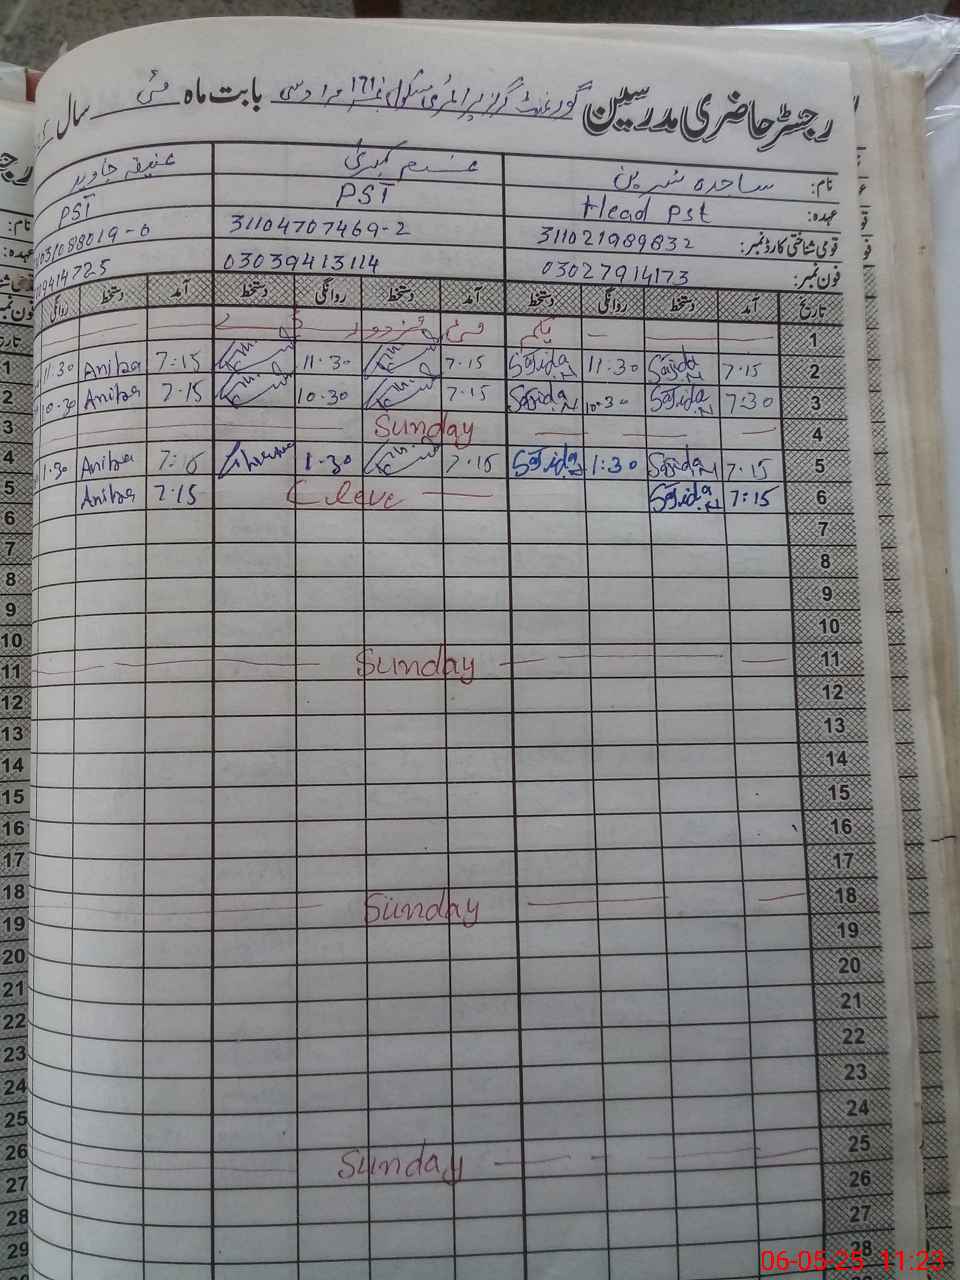 رجسٹر حاضری مدرسین گورنمنٹ گرلز پرائمری سکول نمبر 171 مراد سی بابت ماہ مئی سال
نام: ساجدہ نسرین کبریٰ عنیقہ جاوید
عہدہ: Head Pst PST PST
قومی شناختی کارڈ نمبر: 311021989832 31104707469-2 031088019-0
فون نمبر: 03027914173 03039413114 9414725
تاریخ آمد دستخط روانگی دستخط آمد دستخط روانگی دستخط آمد دستخط روانگی
1 یکم مئی مزدور ڈے
2 7·15 Sajida 11:30 Sajida 7·15 11·30 7:15 Aniba 11:30
3 7:30 Sajida 10·30 Sajida 7·15 10·30 7·15 Aniba 10·30
4 Sunday
5 7·15 Sajida 1:30 Sajida 7·15 1·30 7:15 Aniba 1·30
6 7:15 Sajida C leve 7·15 Aniba
7
8
9
10
11 Sunday
12
13
14
15
16
17
18 Sunday
19
20
21
22
23
24
25 Sunday
26
27
28
06-05-25 11:23